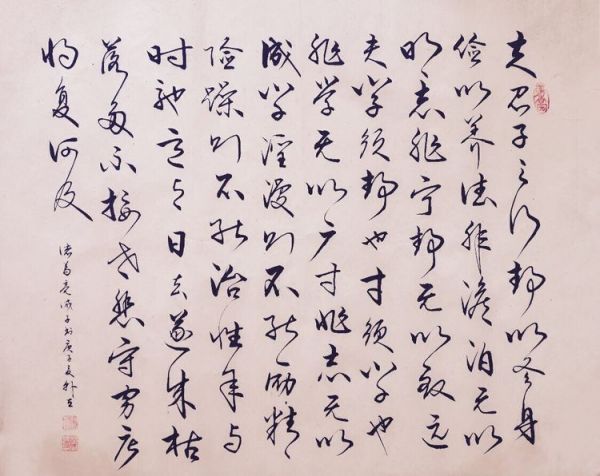 夫君子之行静以修身
俭以养德非澹泊无以
明志非宁静无以致远
夫学须静也才须学也
非学无以广才非志无以
成学淫漫则不能励精
险躁则不能治性年与
时驰意与日去遂成枯
落多不接世悲守穷庐
将复何及
诸葛亮诫子书庚子夏